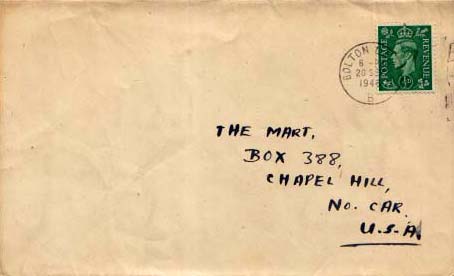 POSTAGE REVENUE
½D
BOLTON
20 S
194
B
THE MART,
BOX 388,
CHAPEL HILL,
NO. CAR.
U.S.A.